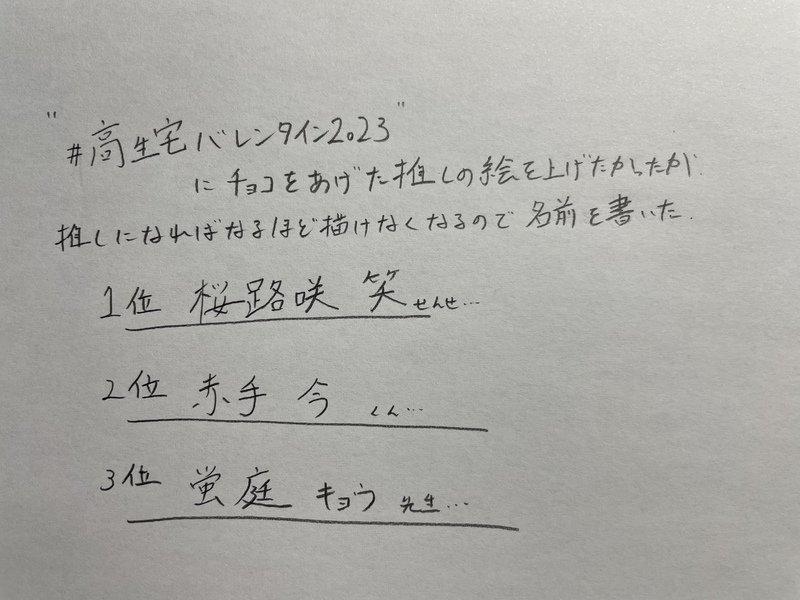 "#高生宅バレンタイン2023"
にチョコをあげた推しの絵を上げたかったが.
推しになればなるほど描けなくなるので名前を書いた.
1位 桜路咲 笑せんせ...
2位 赤手 今 くん...
3位 蛍庭 キョウ 先生...